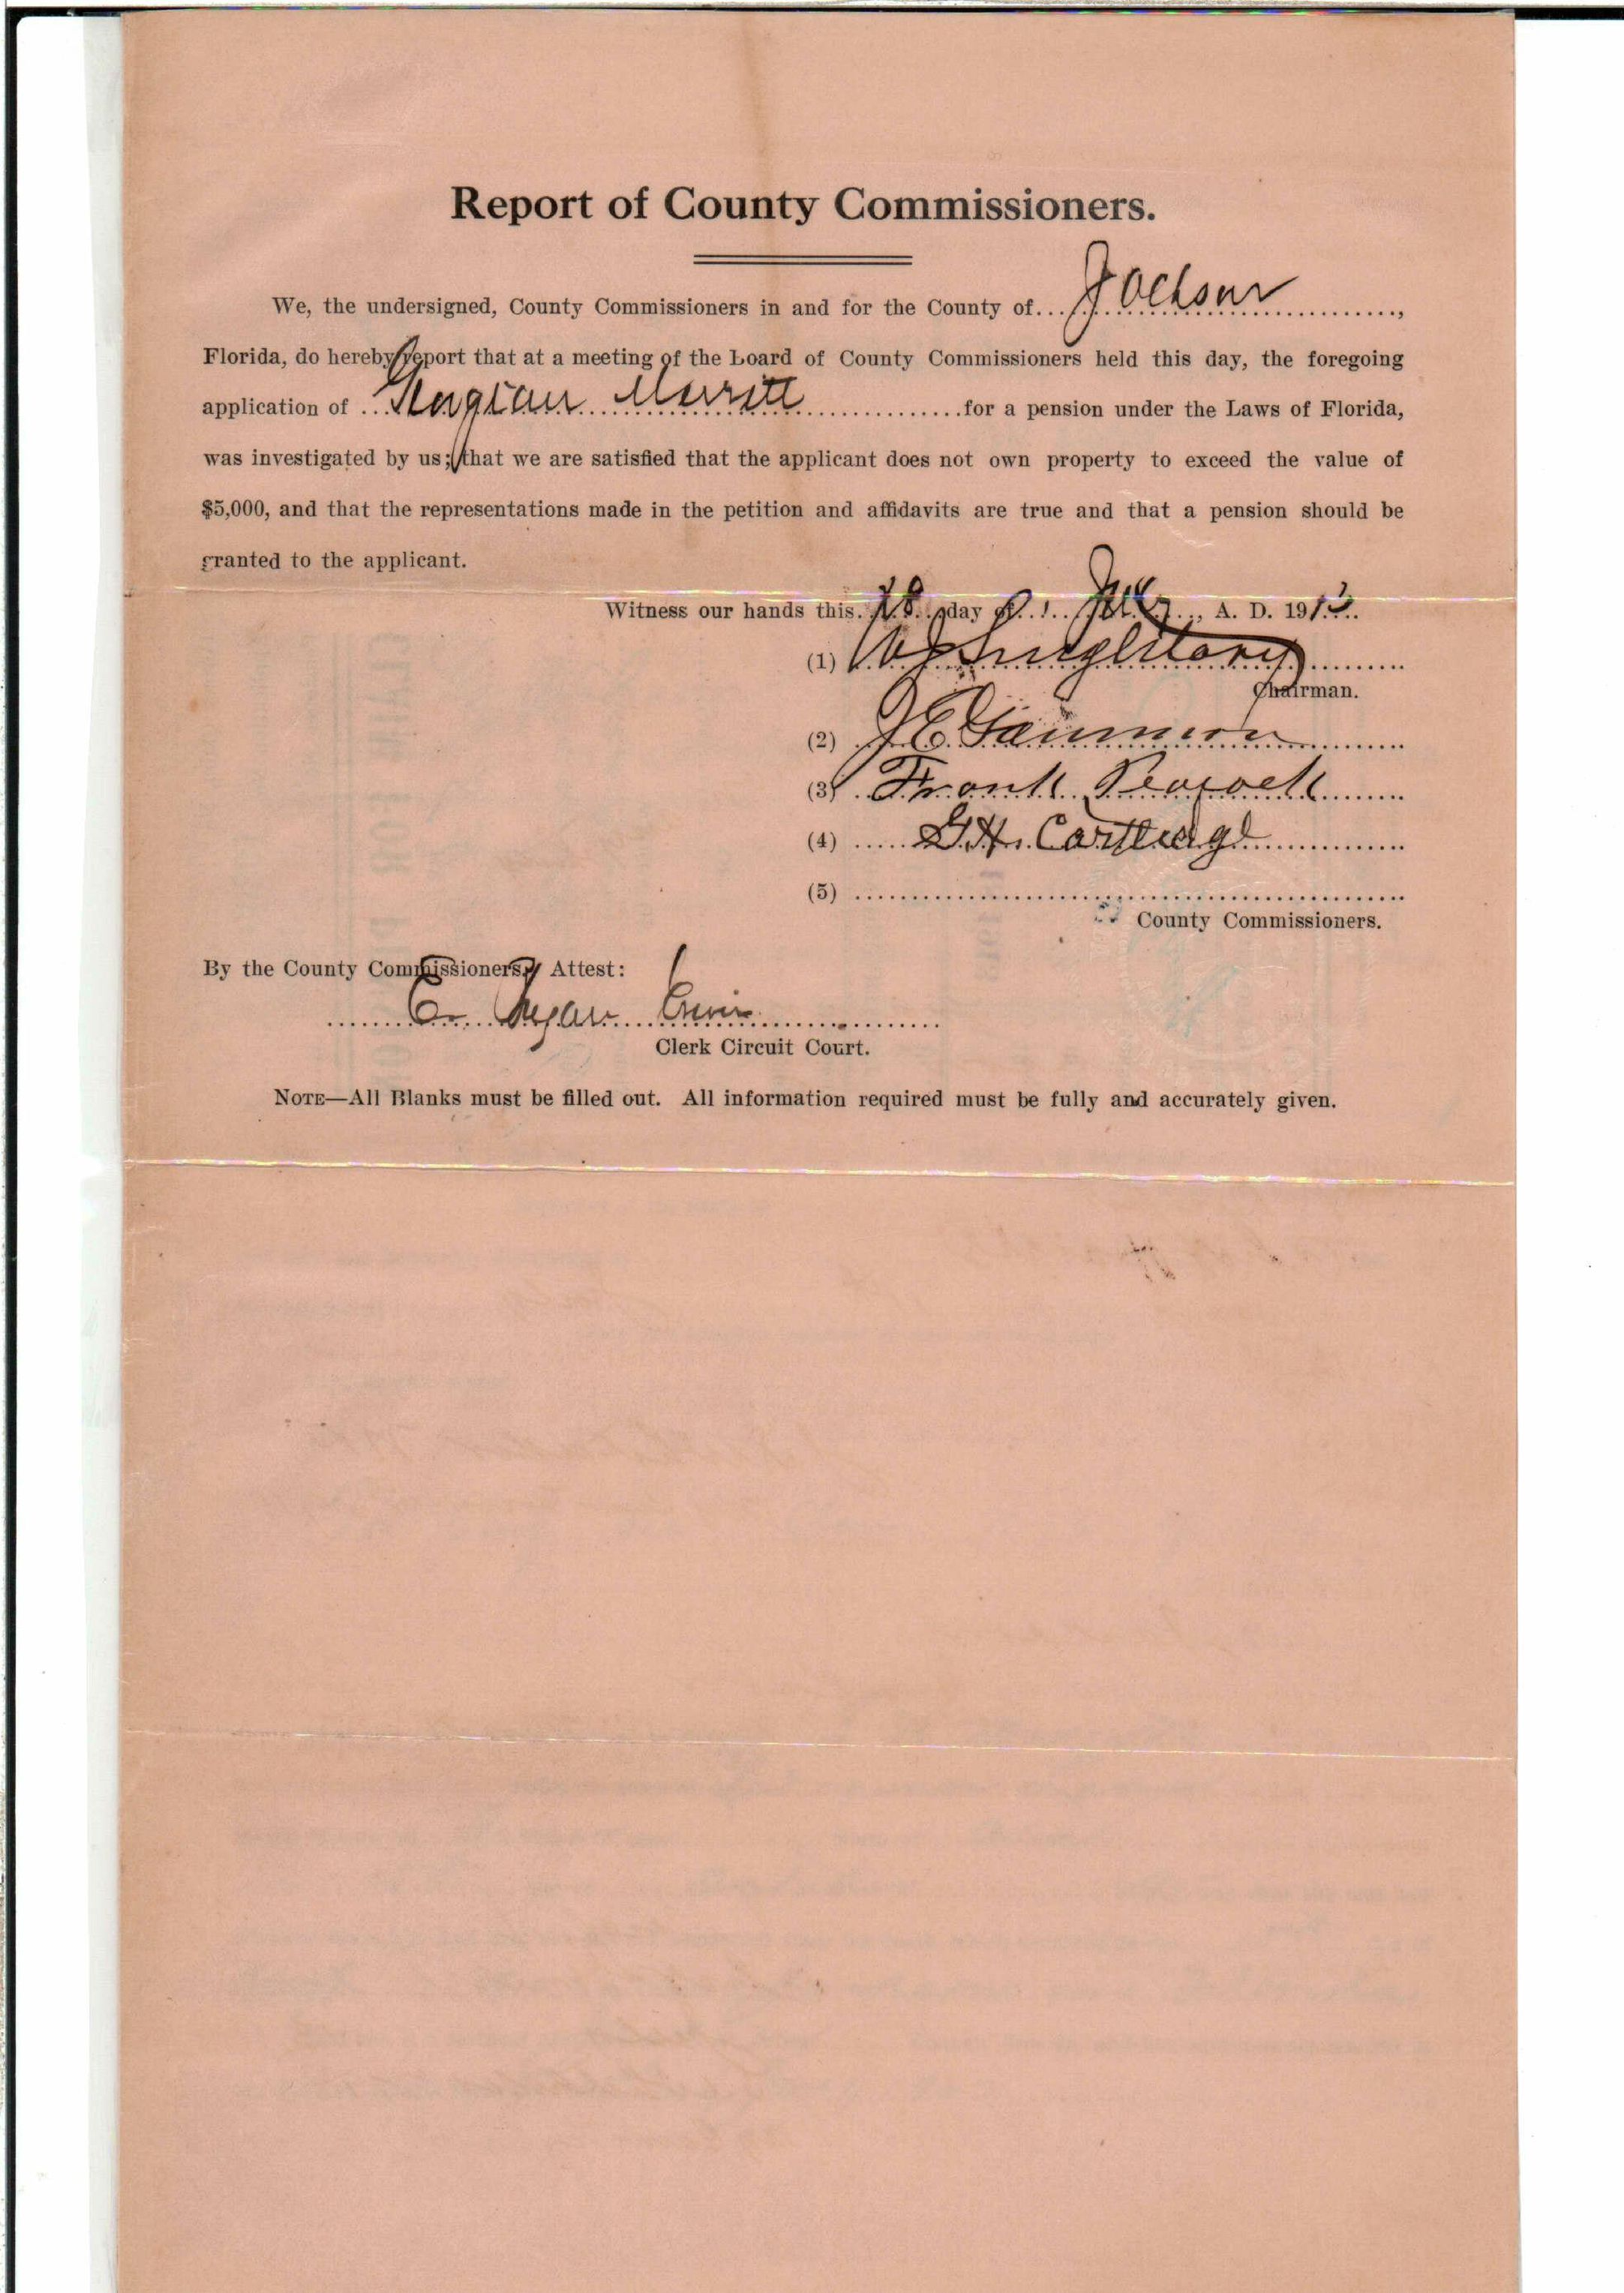 Report of County Commissioners.
We, the undersigned, County Commissioners in and for the County of... Jackson ...,
Florida, do hereby report that at a meeting of the Loard of County Commissioners held this day, the foregoing
application of ... Merritt ... for a pension under the Laws of Florida,
was investigated by us; that we are satisfied that the applicant does not own property to exceed the value of
$5,000, and that the representations made in the petition and affidavits are true and that a pension should be
granted to the applicant.
Witness our hands this. 28 day of ... July ..., A. D. 1913.
(1) W J Singletary
Chairman.
(2) J E Gammon
(3) Frank Peacock
(4) G. H. Cartledge
(5)
County Commissioners.
By the County Commissioners, Attest:
C.
Clerk Circuit Court.
NOTE—All Blanks must be filled out. All information required must be fully and accurately given.